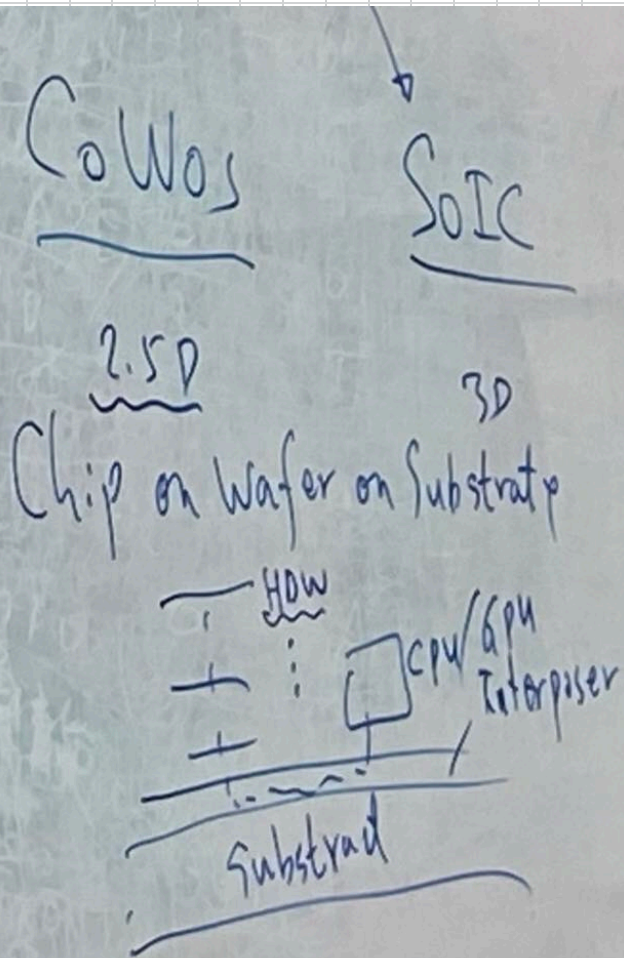 CoWos
SoIC
2.5D
3D
Chip on Wafer on Substrate
CPU/GPU
Interposer
Substract